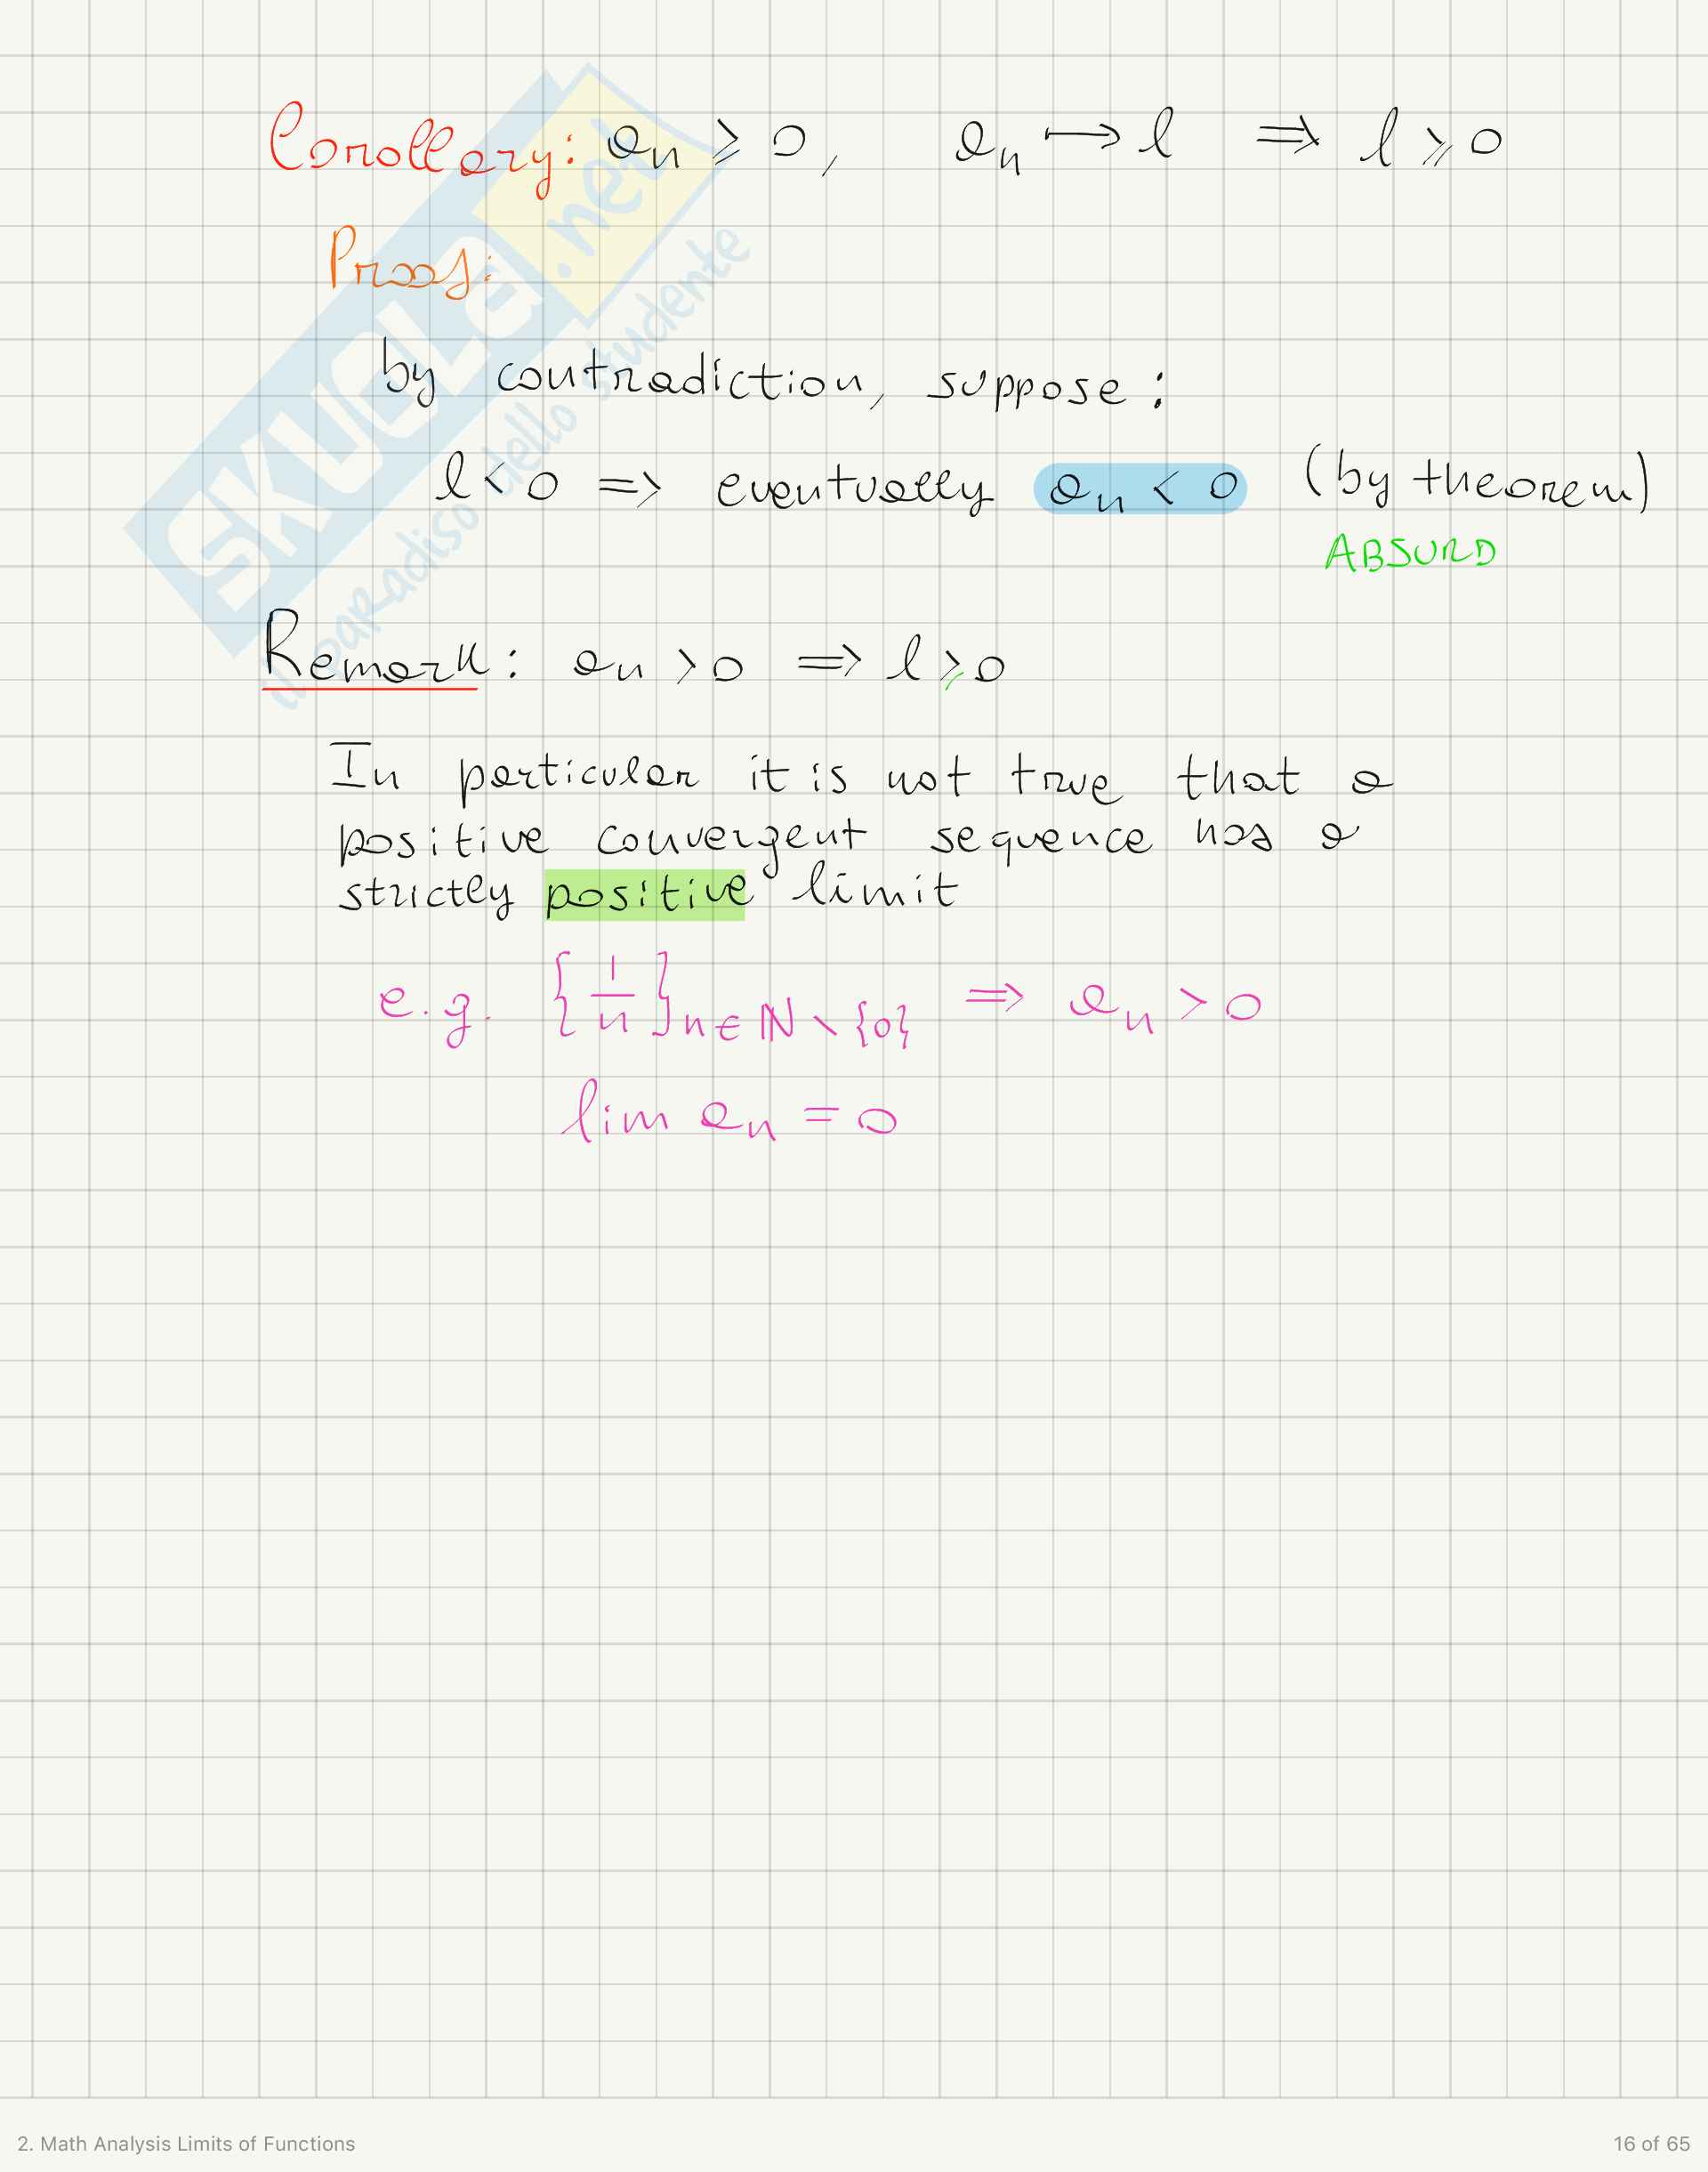 Corollary: aₙ ⩾ 0, aₙ ⟼ l ⇒ l ⩾ 0
Proof:
by contradiction, suppose:
l < 0 ⇒ eventually aₙ < 0 (by theorem)
ABSURD
Remark: aₙ > 0 ⇒ l ⩾ 0
In particular it is not true that a
positive convergent sequence has a
strictly positive limit
e.g. {1/n}ₙ∈ℕ∖{0} ⇒ aₙ > 0
lim aₙ = 0
SKUOLA.net
il paradiso dello studente
2. Math Analysis Limits of Functions
16 of 65